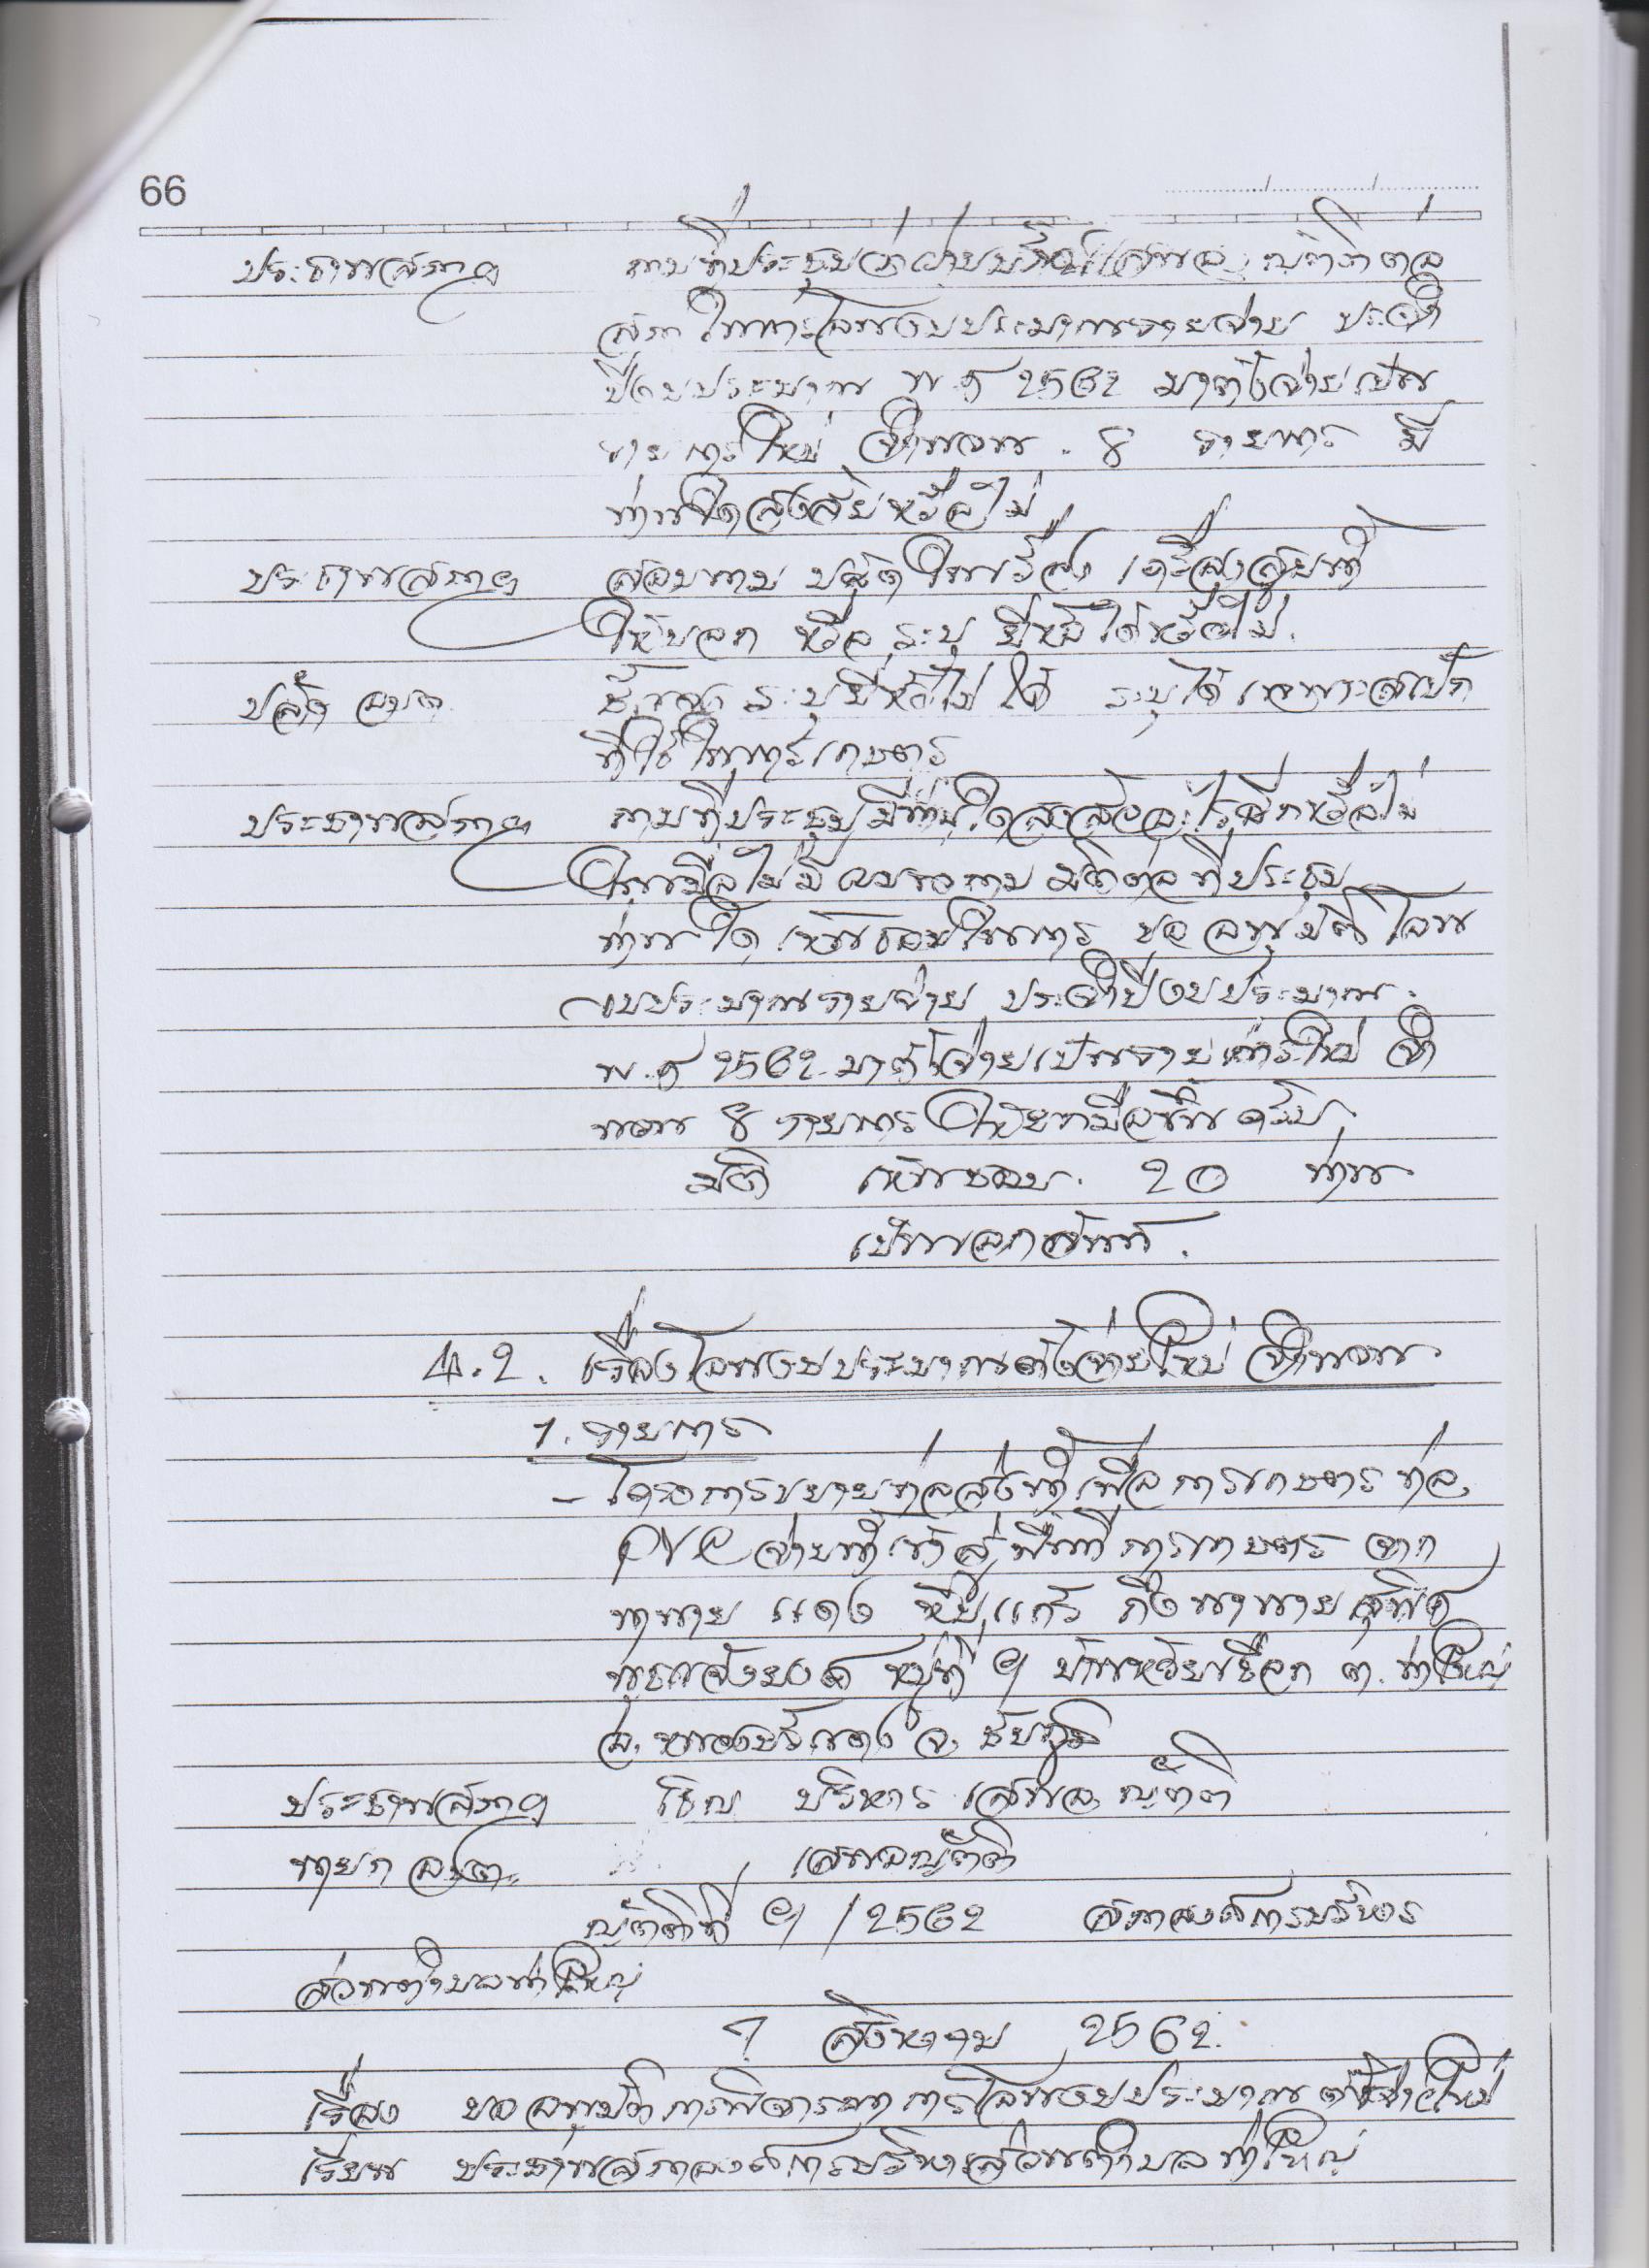 66
ประธานสภาฯ ถามที่ประชุมว่าฝ่ายบริหารเสนอญัตติต่อ
สภา ในการโอนงบประมาณรายจ่าย ประจำ
ปีงบประมาณ พ.ศ 2562 มาตั้งจ่ายเป็น
รายการใหม่ จำนวน. 8 รายการ มี
ท่านใดสงสัยหรือไม่
ประธานสภาฯ สอบถาม ปลัด ในเรื่อง เครื่องสูบน้ำ
ให้บอก หรือ ระบุ ยี่ห้อ ได้หรือไม่.
ปลัด อบต. ระบุยี่ห้อไม่ ได้ ระบุได้เฉพาะสเป็ก
ที่ใช้ในการเกษตร
ประธานสภาฯ ถามที่ประชุมมีท่านใดสงสัยอะไรอีกหรือไม่
ในเมื่อไม่มี ผมขอถาม มติต่อที่ประชุม
ท่านใด เห็นชอบในการ ขออนุมัติ โอน
งบประมาณรายจ่าย ประจำปีงบประมาณ.
พ.ศ 2562. มาตั้งจ่ายเป็นรายการใหม่ จำ
นวน 8 รายการ ให้ยกมือขึ้น ครับ
มติ เห็นชอบ. 20 ท่าน
เป็นเอกฉันท์.
4.2. เรื่องโอนงบประมาณตั้งจ่ายใหม่ จำนวน.
1. รายการ
- โครงการขยายท่อส่งน้ำเพื่อการเกษตร ท่อ
PVC จ่ายน้ำเข้าสู่พื้นที่การเกษตร จาก
นานาย แดง แก้ว ถึงนานาย
หมู่ที่ ๆ บ้านห้วยเรือก ต. ท่าใหญ่
อ. หนองบัวแดง จ. ชัยภูมิ
ประธานสภาฯ เชิญ บริหาร เสนอ ญัตติ
นายก อบต. เสนอญัตติ
ญัตติที่ ๆ /2562 สภาองค์การบริหาร
ส่วนตำบลท่าใหญ่
7 สิงหาคม 2562.
เรื่อง ขออนุมัติการพิจารณาการโอนงบประมาณตั้งจ่ายใหม่
เรียน ประธานสภาองค์การบริหารส่วนตำบลท่าใหญ่